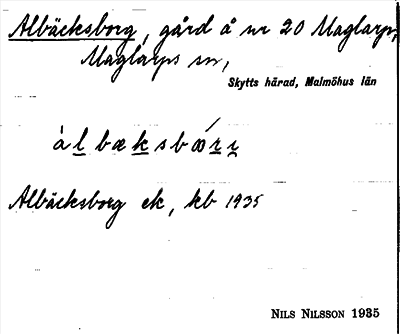 Albäcksborg, gård å nr 20 Maglarp,
Maglarps sn,
Skytts härad, Malmöhus län
àl̲bæk̲sbó̤r̲i̯
Albäcksborg ek, kb 1935
NILS NILSSON 1935